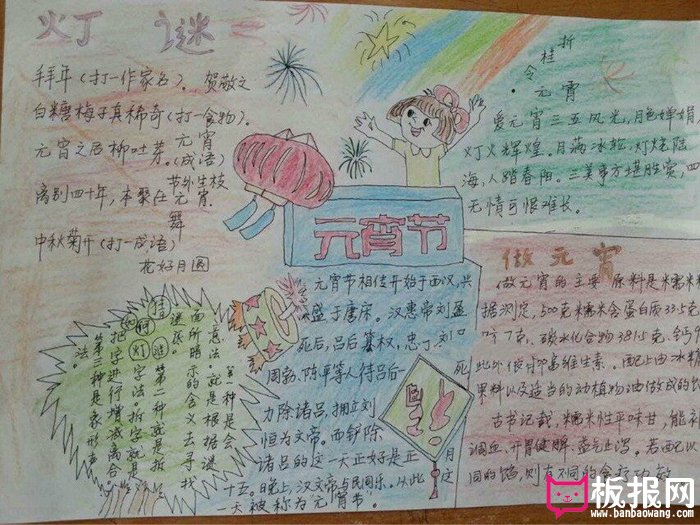 灯 谜
拜年（打一作家名）。贺敬之
白糖梅子真稀奇（打一食物）.
元宵
元宵之后柳吐芽.（成语）
节外生枝
离别四十年，本聚在元宵.
舞
中秋菊开（打一成语）
花好月圆
折
桂
令
元宵
爱元宵三五风光，月色婵娟，
灯火辉煌。月满冰轮，灯烧陆
海，人踏春阳。三美事方堪胜赏，四
无情可恨难长。
元宵节
元宵节相传开始于西汉，兴
盛于唐宋。汉惠帝刘盈
死后，吕后篡权，
周勃、陈平等人待吕后
死
力除诸吕，拥立刘
恒为文帝。而铲除
诸吕的这一天正好是正
月
十五。晚上，汉文帝与民同乐。从此
这
一天被称为"元宵节"
做元宵
做元宵的主要原料是糯米
据测定，500克糯米含蛋白质33.5克
7克，碳水化合物381.5克
此外
维生素。配上由冰
果料以及适当的动植物油做成的
古书记载，糯米性平味甘，能补
调血、开胃健脾、益气止泻。若配以
同的馅，则有不同的食疗功效
猜
灯
谜
第一种是会
意法，就是根据谜
面所暗示的含义去寻找
谜底。
第二种就是拆
字法，拆字就是
把字进行增减离合。
第三种是象形
法。
福
板报网
www.banbaowang.com